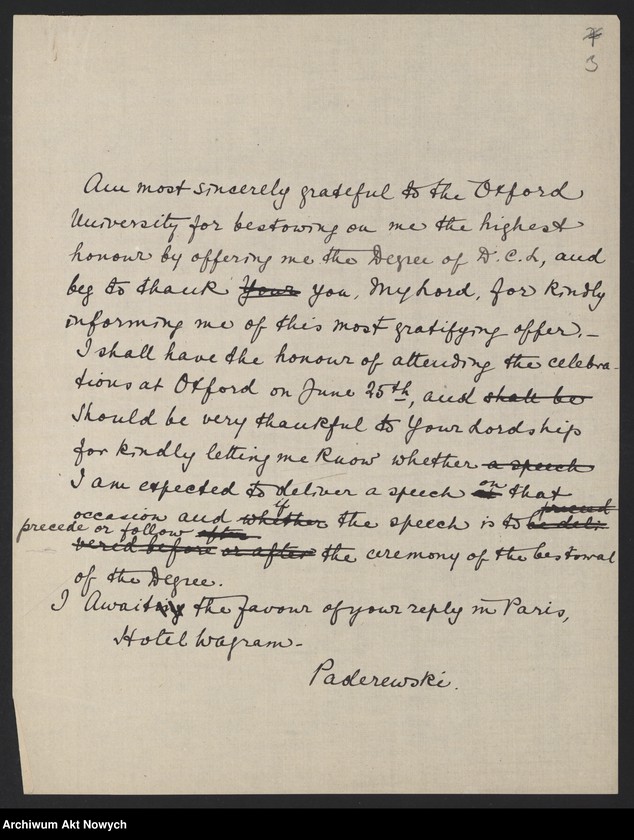 3
Am most sincerely grateful to the Oxford
University for bestowing on me the highest
honour by offering me the Degree of D.C.L, and
beg to thank Your you, My Lord, for kindly
informing me of this most gratifying offer.—
I shall have the honour of attending the celebra-
tions at Oxford on June 25th, and shall be
should be very thankful to Your Lordship
for kindly letting me know whether a speech
I am expected to deliver a speech on that
occasion and whether if the speech is to be deli-
precede or follow after
vered before or after the ceremony of the bestowal
of the Degree.
I Await the favour of your reply in Paris,
Hotel Wagram—
Paderewski.
Archiwum Akt Nowych